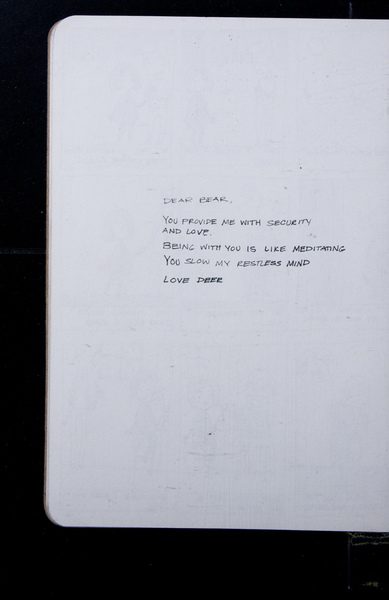 DEAR BEAR,
YOU PROVIDE ME WITH SECURITY
AND LOVE.
BEING WITH YOU IS LIKE MEDITATING
YOU SLOW MY RESTLESS MIND
LOVE DEER